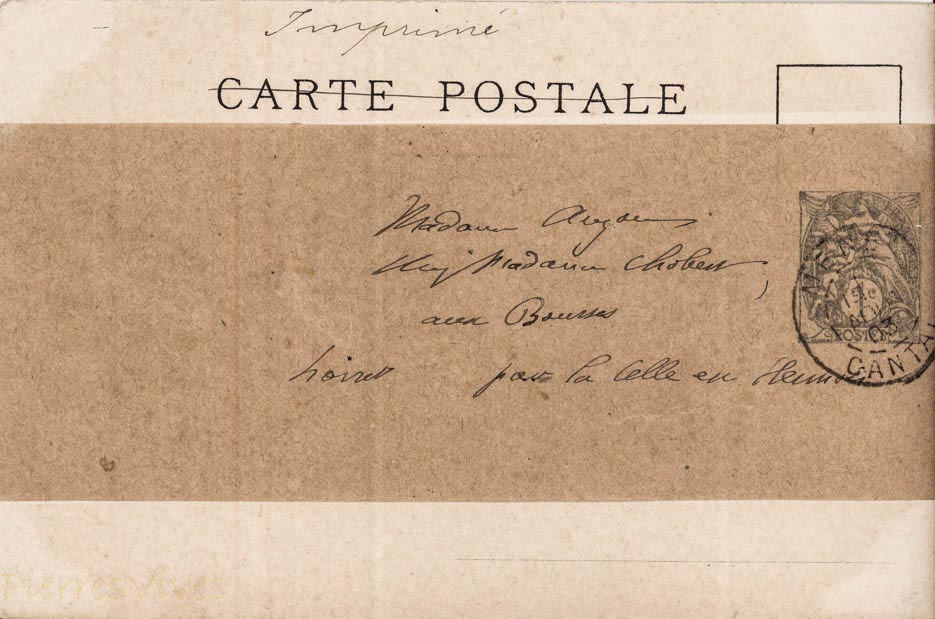 Imprimé
CARTE POSTALE
Madame
chez Madame Chobert
aux Bourses
Loiret par la Celle en
CANTAL
03
POSTES
PierresVives